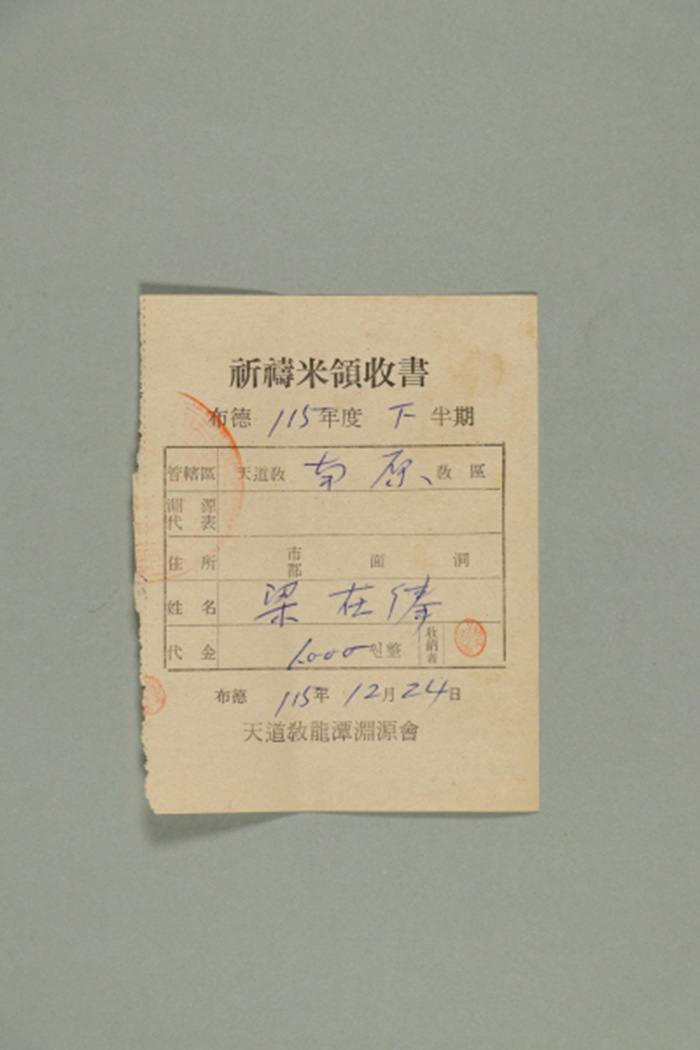 祈禱米領收書
布德 115年度 下 半期
管轄區 天道敎 南原 敎區
淵源代表
住所 市郡 面 洞
姓名 梁在
代金 1.000 원整 收納者
布德 115年 12月 24日
天道敎龍潭淵源會